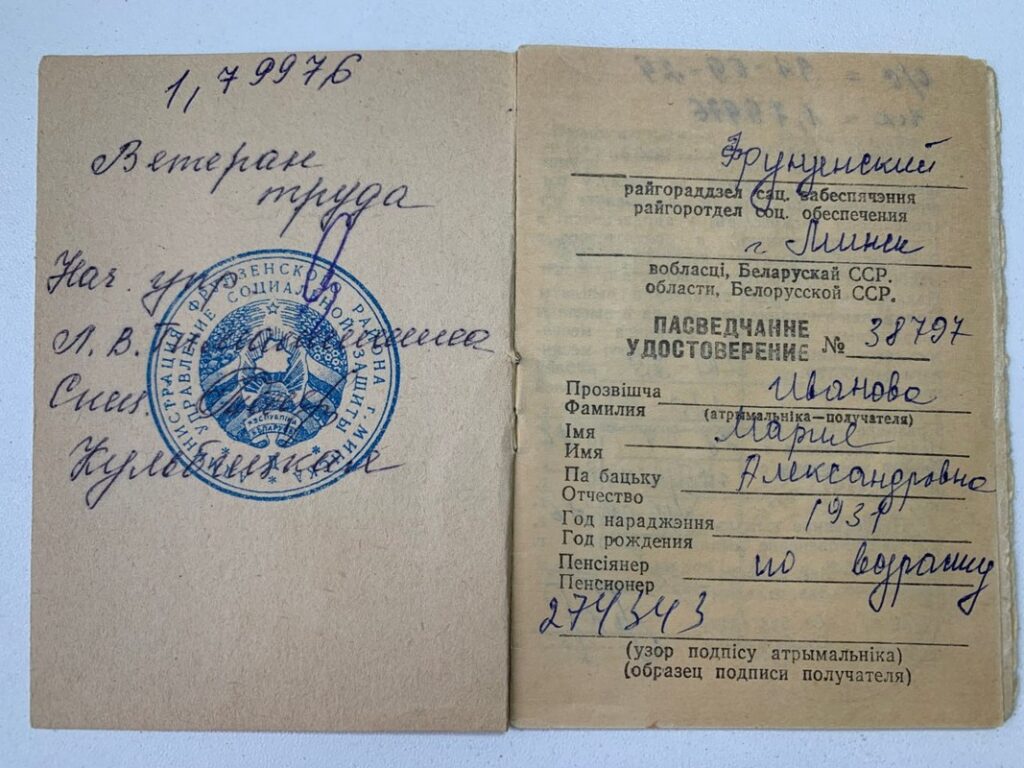 1,79976
Ветеран
труда
Нач. упр
Л. В.
Спец.
Кульбицкая
АДМИНИСТРАЦИЯ ФРУНЗЕНСКОГО РАЙОНА г. МИНСКА
УПРАВЛЕНИЕ СОЦИАЛЬНОЙ ЗАЩИТЫ
РЭСПУБЛІКА
БЕЛАРУСЬ
Фрунзенский
райгораддзел сац. забеспячэння
райгоротдел соц. обеспечения
г. Минск
вобласці, Беларускай ССР.
области, Белорусской ССР.
ПАСВЕДЧАННЕ
УДОСТОВЕРЕНИЕ № 38797
Прозвішча Иванова
Фамилия (атрымальніка—получателя)
Імя Мария
Имя
Па бацьку Александровна
Отчество
Год нараджэння 1931
Год рождения
Пенсіянер по возрасту
Пенсионер
274343
(узор подпісу атрымальніка)
(образец подписи получателя)